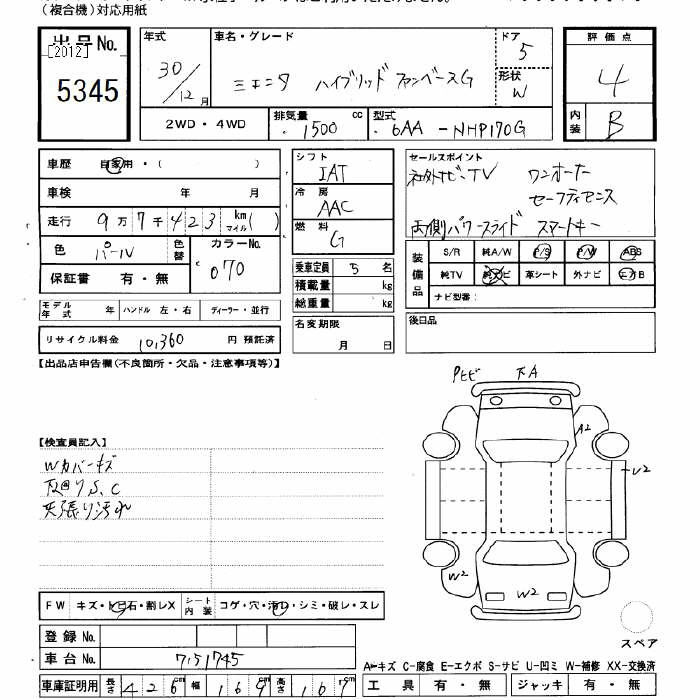 (複合機)対応用紙
出品No.
[2012]
5345
年式
30/12月
車名・グレード
シエンタ ハイブリッド ファンベースG
ドア
5
形状
W
評価点
4
内装
B
2WD・4WD
排気量 1500 cc
型式 6AA-NHP170G
車歴 自家用・( )
車検 年 月
走行 9万7千423 km マイル( )
色 パール
色替
カラーNo.
070
保証書 有・無
シフト
IAT
冷房
AAC
燃料
G
乗車定員 5 名
積載量 kg
総重量 kg
名変期限
月 日
セールスポイント
社外ナビ・TV ワンオーナー
セーフティセンス
両側パワースライド スマートキー
装備品
S/R 純A/W P/S P/W ABS
純TV 純ナビ 革シート 外ナビ エアB
ナビ型番:
後日品
モデル年式 年 ハンドル 左・右 ディーラー・並行
リサイクル料金 10,360 円 預託済
【出品店申告欄(不良箇所・欠品・注意事項等)】
【検査員記入】
Wカバーキズ
下回りS、C
天張り汚れ
Pヒビ
下A
A2
U2
W2
W2
スペア
FW キズ・トビ石・割レX
シート内装 コゲ・穴・汚レ・シミ・破レ・スレ
登録No.
車台No. 7151745
車庫証明用 長さ 426 幅 169 高さ 167
A-キズ C-腐食 E-エクボ S-サビ U-凹ミ W-補修 XX-交換済
工具 有・無 ジャッキ 有・無